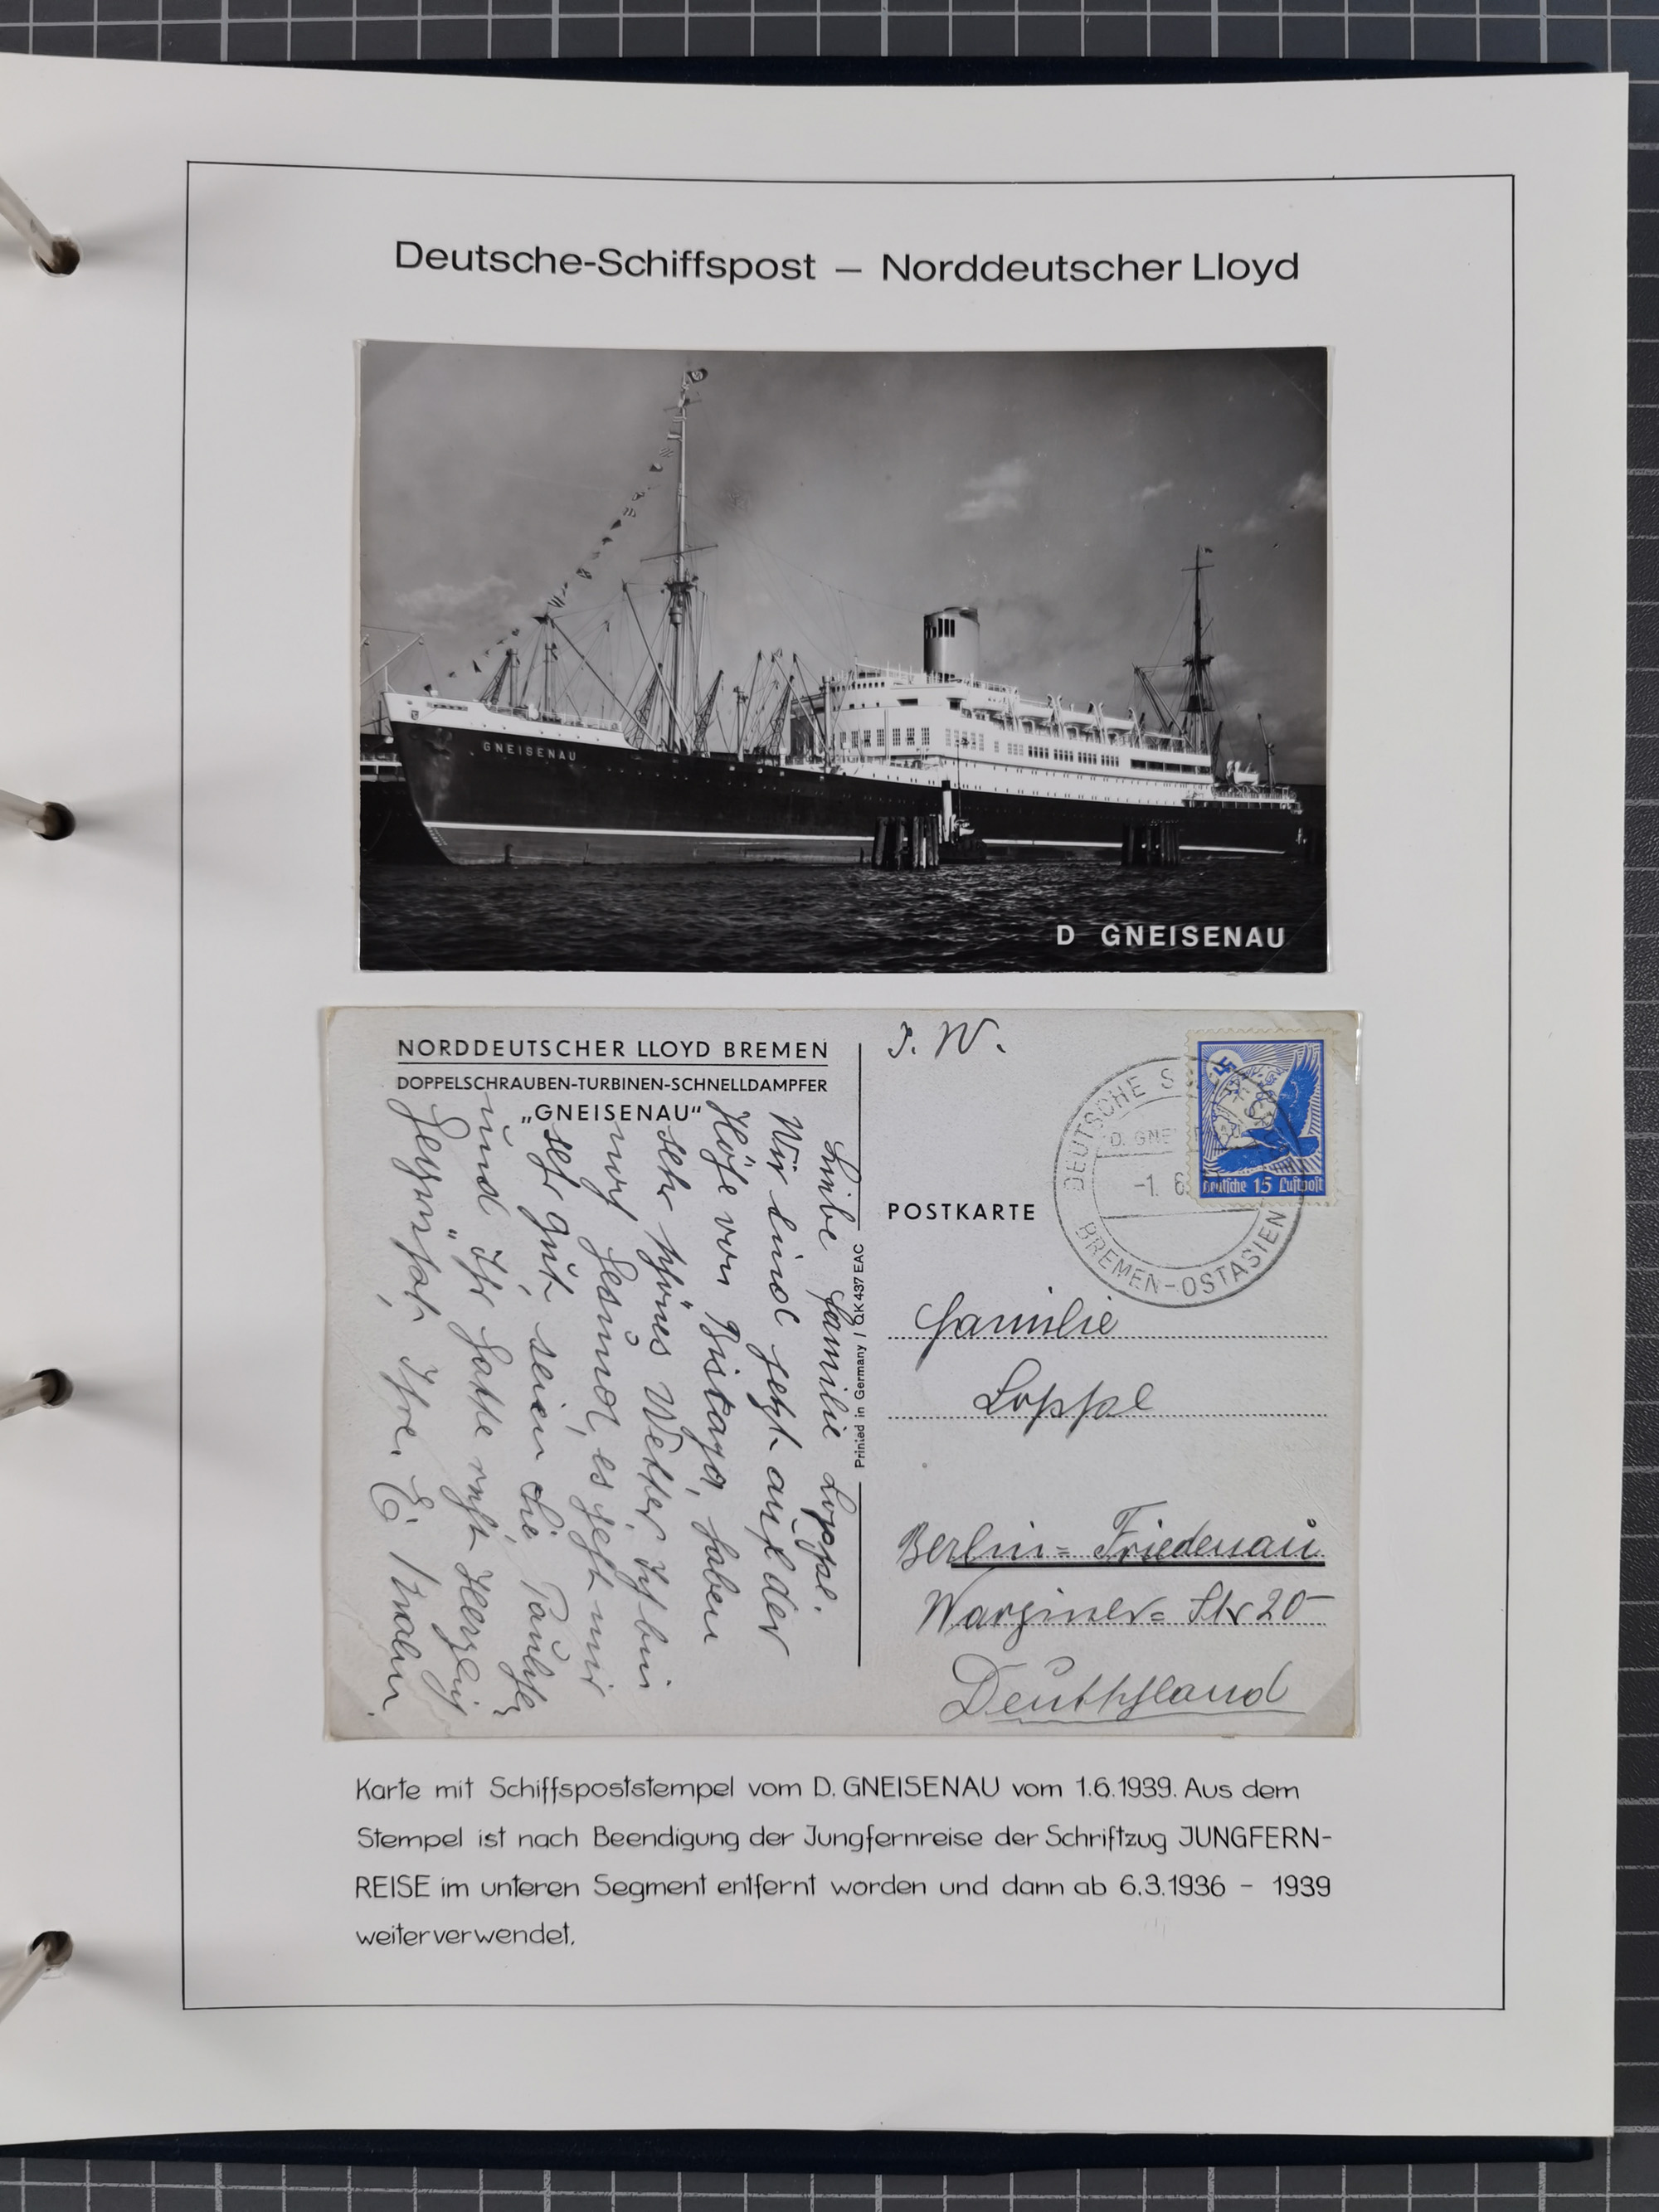 Deutsche-Schiffspost – Norddeutscher Lloyd
GNEISENAU
D GNEISENAU
NORDDEUTSCHER LLOYD BREMEN
DOPPELSCHRAUBEN-TURBINEN-SCHNELLDAMPFER
„GNEISENAU“
Liebe Familie Loppe.
Wir sind jetzt auf der
Höhe von Biskaya, haben
sehr schönes Wetter, Ich bin
noch Gesund, es geht mir
sehr gut, seien Sie
und Ihr Gatte recht Herzlich
Ihre E.
Printed in Germany / QK 437 EAC
DEUTSCHE S
D. GNE
-1. 6
BREMEN-OSTASIEN
Deutsche 15 Luftpost
POSTKARTE
Familie
Loppe
Berlin=Friedenau
Str 20
Deutschland
Karte mit Schiffspoststempel vom D. GNEISENAU vom 1.6.1939. Aus dem
Stempel ist nach Beendigung der Jungfernreise der Schriftzug JUNGFERN-
REISE im unteren Segment entfernt worden und dann ab 6.3.1936 – 1939
weiterverwendet.